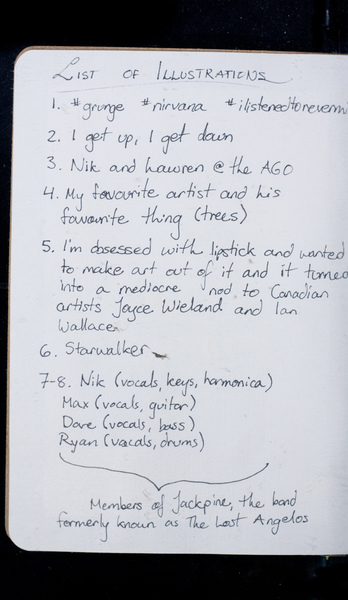 LIST OF ILLUSTRATIONS
1. #grunge #nirvana #ilistenedtonevermi
2. I get up, I get down
3. Nik and Lawren @ the AGO
4. My favourite artist and his
favourite thing (trees)
5. I'm obsessed with lipstick and wanted
to make art out of it and it turned
into a mediocre nod to Canadian
artists Joyce Wieland and Ian
Wallace
6. Starwalker
7-8. Nik (vocals, keys, harmonica)
Max (vocals, guitar)
Dave (vocals, bass)
Ryan (vocals, drums)
Members of Jackpine, the band
formerly known as The Lost Angelos